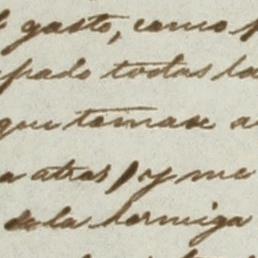 gasto, como
pado todas la
que tomase a
a atras, y me
de la hormiga